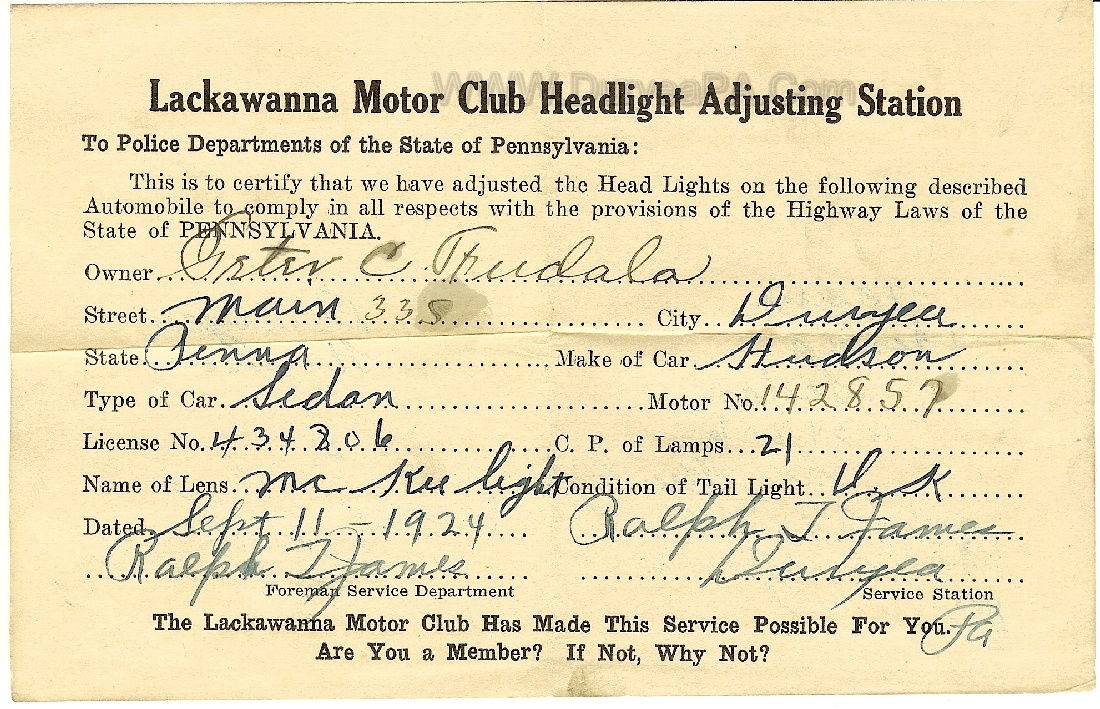 WWW.DuryeaPA.Com
Lackawanna Motor Club Headlight Adjusting Station
To Police Departments of the State of Pennsylvania:
This is to certify that we have adjusted the Head Lights on the following described
Automobile to comply in all respects with the provisions of the Highway Laws of the
State of PENNSYLVANIA.
Owner C Trudala
Street Main 335 City Duryea
State Penna Make of Car Hudson
Type of Car Sedan Motor No. 142857
License No. 434806 C. P. of Lamps 21
Name of Lens Mc Kee light Condition of Tail Light O. K
Dated Sept 11 - 1924 Ralph T James
Ralph T James Duryea
Foreman Service Department Service Station
The Lackawanna Motor Club Has Made This Service Possible For You. Pa
Are You a Member? If Not, Why Not?